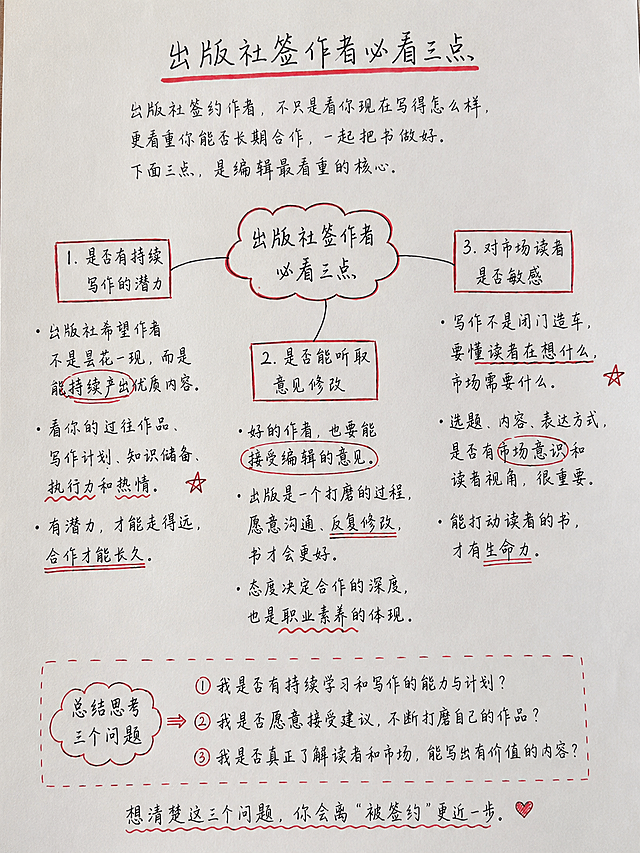 出版社签作者必看三点
出版社签约作者，不只是看你现在写得怎么样，
更看重你能否长期合作，一起把书做好。
下面三点，是编辑最看重的核心。
出版社签作者
必看三点
1. 是否有持续
写作的潜力
· 出版社希望作者
不是昙花一现，而是
能持续产出优质内容。
· 看你的过往作品、
写作计划、知识储备、
执行力和热情。
· 有潜力，才能走得远，
合作才能长久。
2. 是否能听取
意见修改
· 好的作者，也要能
接受编辑的意见。
· 出版是一个打磨的过程，
愿意沟通、反复修改，
书才会更好。
· 态度决定合作的深度，
也是职业素养的体现。
3. 对市场读者
是否敏感
· 写作不是闭门造车，
要懂读者在想什么，
市场需要什么。
· 选题、内容、表达方式，
是否有市场意识和
读者视角，很重要。
· 能打动读者的书，
才有生命力。
总结思考
三个问题
① 我是否有持续学习和写作的能力与计划？
② 我是否愿意接受建议，不断打磨自己的作品？
③ 我是否真正了解读者和市场，能写出有价值的内容？
想清楚这三个问题，你会离“被签约”更近一步。